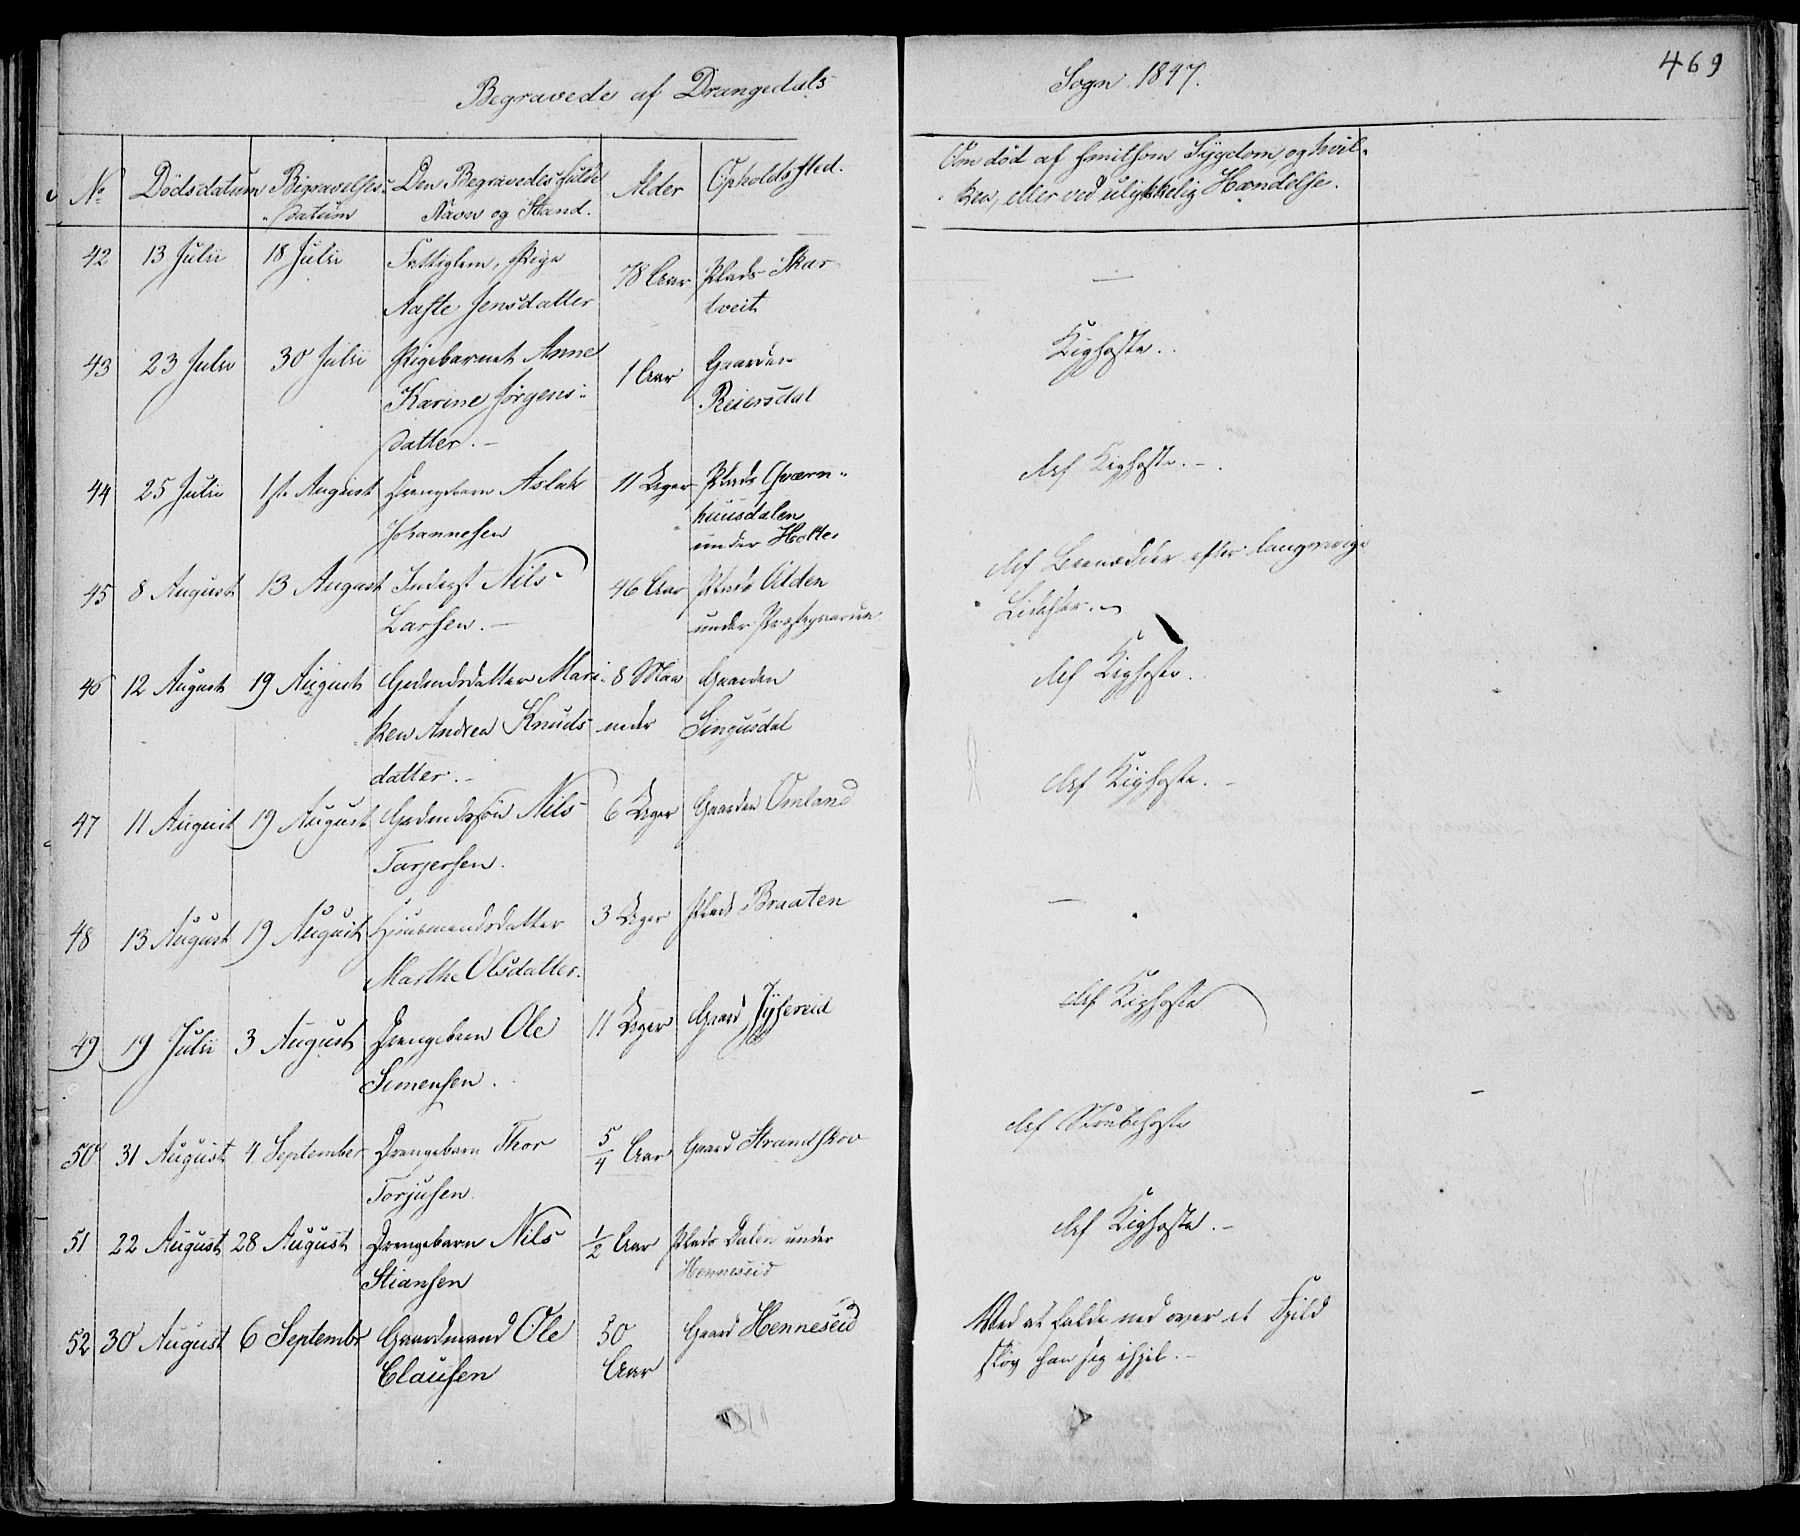 469
Begravede af Drangedals Sogn 1847.
No Dödsdatum Begravelses- Den Begravedes fulde Alder Opholdssted. Om död af smitsom Sygdom, og hvil-
datum Navn og Stand. ken, eller ved ulykkelig Hændelse.
42 13 Julii 18 Julii Fattiglem, Pige 78 Aar Plads Skar
Aaste Jensdatter tveit —
43 23 Julii 30 Julii Pigebarnet Anne 1 Aar Gaarden Kighoste.
Karine Jörgens- Reiersdal
datter. —
44 25 Julii 1ste August Drengebarn Aslak 11 Uger Plads Qværn- Af Kighoste. —
Johannesen huusdalen
under Holte
45 8 August 13 August Inderst Nils 46 Aar Plads Alden Af efter langvarige
Larsen. — under Lidelser.
46 12 August 19 August Gaardmandsdatter Mari- 8 Maa Gaarden Af Kighoste.
ken Andrea Knuds neder Gingusdal
datter. —
47 11 August 19 August Nils 6 Uger Gaarden Omland Af Kighoste. —
Tarjersen.
48 13 August 19 August Huusmandsdatter 3 Uger Plads Braaten —
Marthe Olsdatter.
49 19 Julii 3 August Drengebarn Ole 11 Uger Gaard Af Kighoste
Simensen.
50 31 August 4 September Drengebarn Thor 5/4 Aar Gaard Strandskov Af Strubehoste
Torjusen
51 22 August 28 August Drengebarn Nils 1/2 Aar Plads Dalen under Af Kighoste. —
Stiansen Henneseid
52 30 August 6 Septembr Gaardmand Ole 50 Gaard Henneseid Ved at falde ned over et Fjeld
Clausen Aar slog han sig ihjel. —